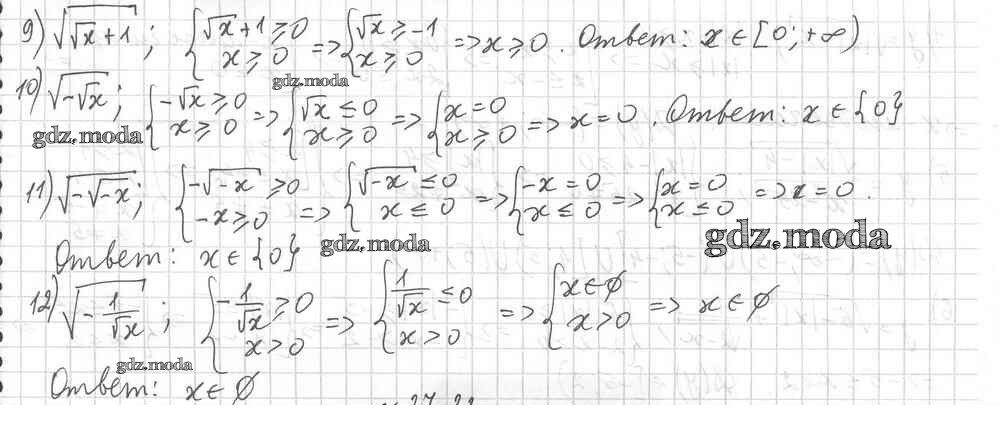 9) √(√x + 1) ; { √x + 1 ⩾ 0 ; x ⩾ 0 => { √x ⩾ -1 ; x ⩾ 0 => x ⩾ 0. Ответ: x ∈ [0; +∞)
gdz.moda
10) √(-√x) ; { -√x ⩾ 0 ; x ⩾ 0 => { √x ⩽ 0 ; x ⩾ 0 => { x = 0 ; x ⩾ 0 => x = 0. Ответ: x ∈ {0}
gdz.moda
11) √(-√(-x)) ; { -√(-x) ⩾ 0 ; -x ⩾ 0 => { √(-x) ⩽ 0 ; x ⩽ 0 => { -x = 0 ; x ⩽ 0 => { x = 0 ; x ⩽ 0 => x = 0.
gdz.moda
gdz.moda
Ответ: x ∈ {0}
12) √(-1/√x) ; { -1/√x ⩾ 0 ; x > 0 => { 1/√x ⩽ 0 ; x > 0 => { x ∈ ∅ ; x > 0 => x ∈ ∅
gdz.moda
Ответ: x ∈ ∅